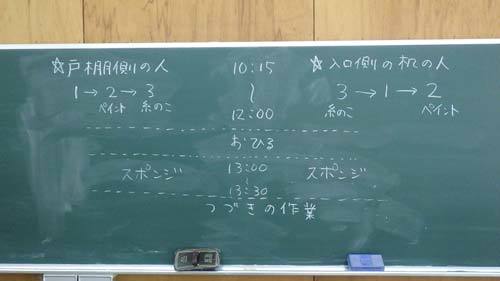 ☆戸棚側の人 10:15 ☆入口側の机の人
1→2→3 〜 3→1→2
ペイント 糸のこ 12:00 糸のこ ペイント
おひる
スポンジ 13:00 スポンジ
〜
13:30
つづきの作業